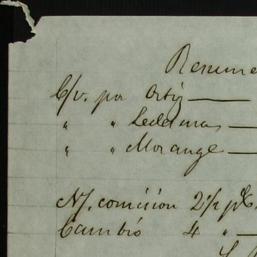 Resume
C/v. por Ortiz —
" " Ledesma —
" " Morange —
N/. comision 2 1/2 p%
Cambio 4 " —